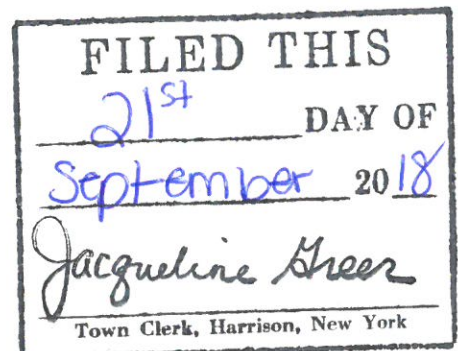 FILED THIS
21st DAY OF
September 2018
Jacqueline Greer
Town Clerk, Harrison, New York